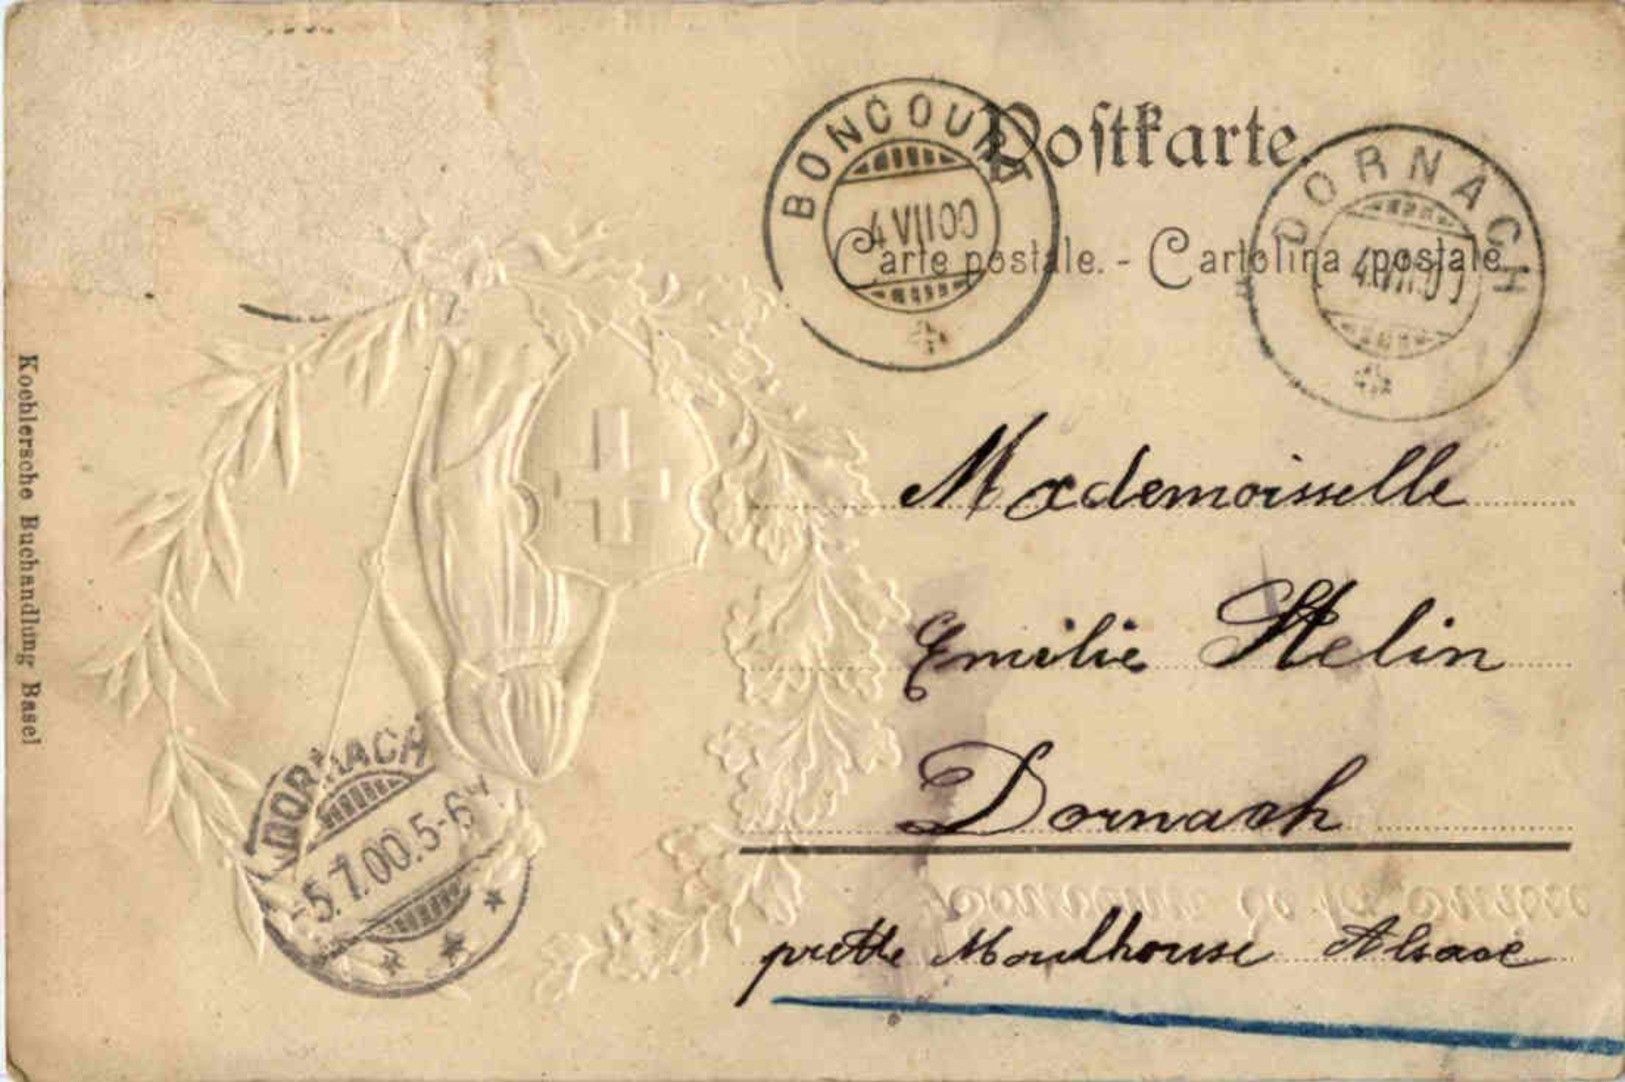 Postkarte.
Carte postale. - Cartolina postale
BONCOURT
4 VII 00
DORNACH
4 VII 00
Mademoisselle
Emilie Stelin
Dornach
prette Moulhouse Alsace
DORNACH
-5.7.00.5-6
Koehlersche Buchandlung Basel